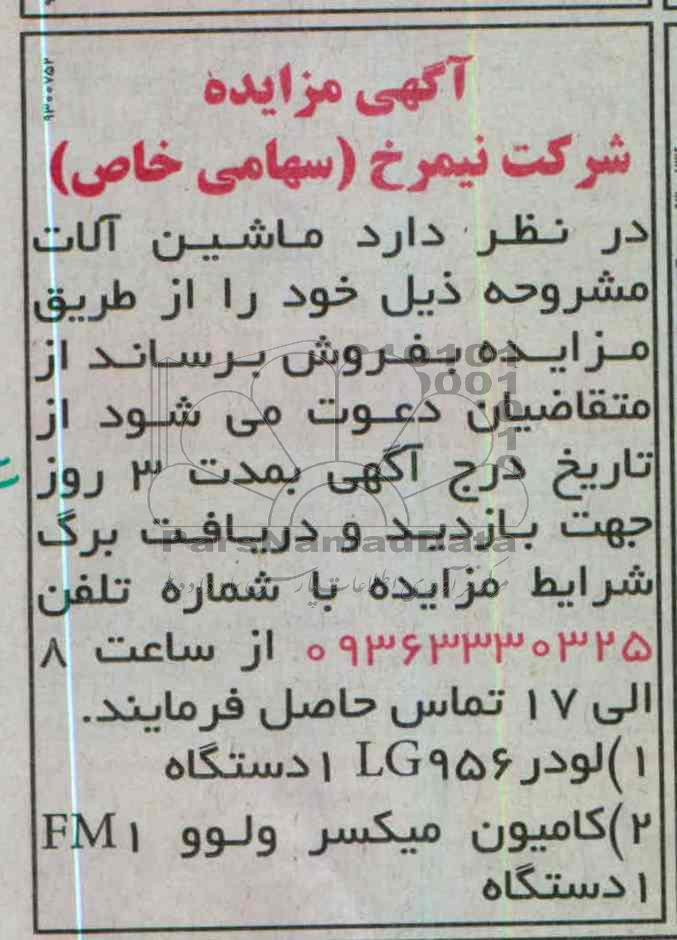 ۹۳۰۰۷۵۲
آگهی مزایده
شرکت نیمرخ (سهامی خاص)
در نظر دارد ماشین آلات
مشروحه ذیل خود را از طریق
مزایده بفروش برساند از
متقاضیان دعوت می شود از
تاریخ درج آگهی بمدت ۳ روز
جهت بازدید و دریافت برگ
شرایط مزایده با شماره تلفن
۰۹۳۶۳۳۳۰۳۲۵ از ساعت ۸
الی ۱۷ تماس حاصل فرمایند.
۱)لودر LG۹۵۶ ۱دستگاه
۲)کامیون میکسر ولوو FM۱
۱دستگاه
ParsNamadData